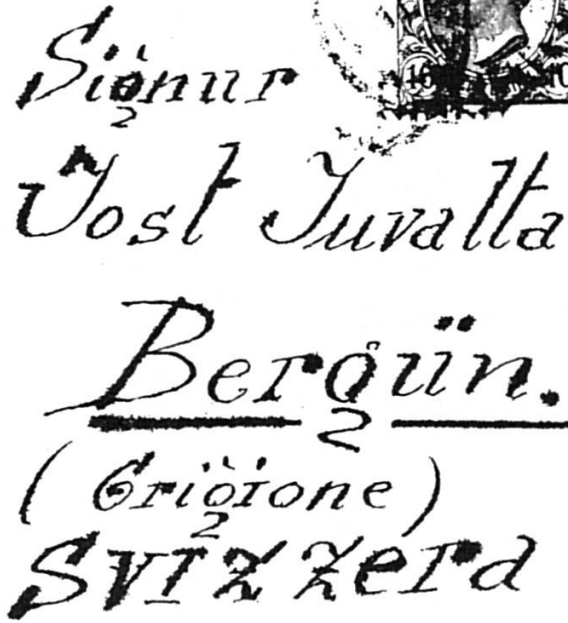 Signur
Jost Juvalta
Bergün.
(Grigione)
Svizzera